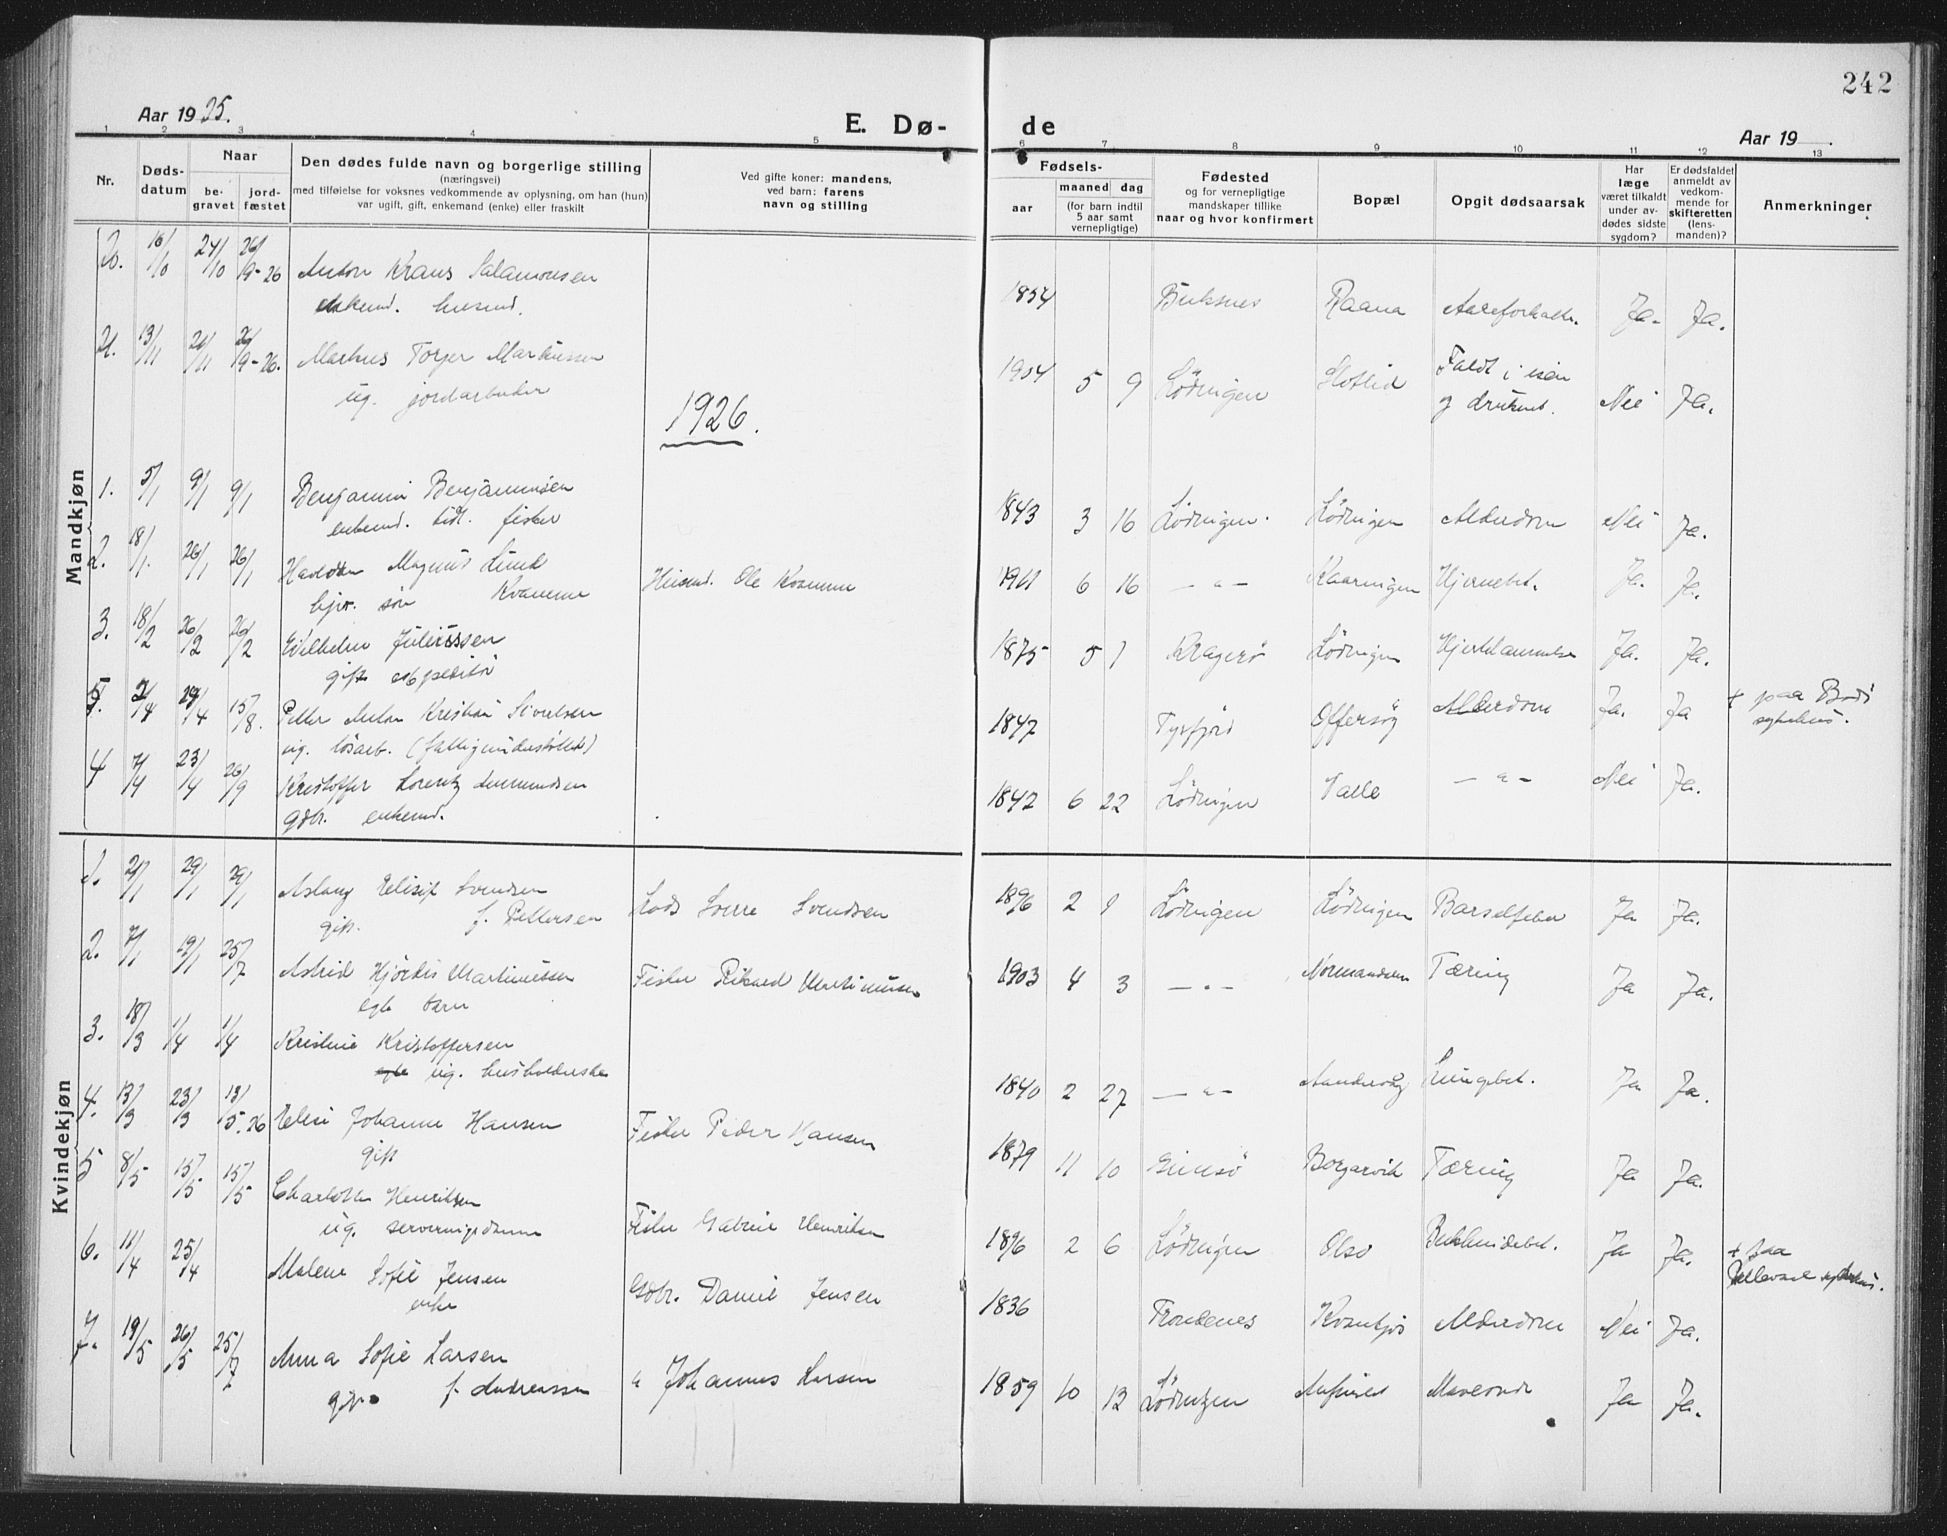 242
Aar 1925.
E. Dø-
de
Aar 19
1 2 3 4 5 6 7 8 9 10 11 12 13
Nr.
Døds-
datum
Naar
be-
gravet
jord-
fæstet
Den dødes fulde navn og borgerlige stilling
(næringsvei)
med tilføielse for voksnes vedkommende av oplysning, om han (hun)
var ugift, gift, enkemand (enke) eller fraskilt
Ved gifte koner: mandens,
ved barn: farens
navn og stilling
Fødsels-
aar
maaned dag
(for barn indtil
5 aar samt
vernepligtige)
Fødested
og for vernepligtige
mandskaper tillike
naar og hvor konfirmert
Bopæl
Opgit dødsaarsak
Har
læge
været tilkaldt
under av-
dødes sidste
sygdom?
Er dødsfaldet
anmeldt av
vedkom-
mende for
skifteretten
(lens-
manden)?
Anmerkninger
Mandkjøn
20. 16/10 24/10 26/9-26 Anton Kraus Salamonsen 1854 Buksnes Raana Ja. Ja.
enkemd. husmd.
21. 13/11 21/11 26/9-26. Markus Torjer Markussen 1904 5 9 Lødingen Slotlid Faldt i isen Nei Ja.
ug. jordarbeider og druknet.
1926.
1. 5/1 9/1 9/1 Benjamin Benjaminsen 1843 3 16 Lødingen. Lødingen Alderdom Nei Ja.
enkemd. tidl. fisker
2. 18/1. 26/1 26/1 Magnus Lund Husmd. Ole Kvamme 1911 6 16 — " — Kaaringen Hjernebet. Ja. Ja.
søn Kvamme
3. 18/2 26/2 26/2 Vilhelm Juliussen 1875 5 1 Kragerø Lødingen Hjertelammelse Ja. Ja.
gift expeditør
5. 2/4 29/4 15/8. Petter Anton Kristian Sivertsen 1847 Tysfjord Offersøy Alderdom Ja. Ja + paa Bodø
ug. løsarb. (fattigunderstøttet) sykehus.
4 7/4 23/4 26/9 Kristoffer Lorentz 1842 6 22 Lødingen Valle — " — Nei Ja.
gdbr. enkemd.
Kvindekjøn
1. 21/1 29/1 29/1 Aslaug Elisif Svendsen Lods Sverre Svendsen 1896 2 1 Lødingen Lødingen Barselfeber Ja Ja.
gift. f. Pettersen
2. 7/1 19/1 25/7 Astrid Hjørdis Martinussen Fisker Rikard Martinussen 1903 4 3 — " — Tæring Ja Ja.
egte barn
3. 18/3 1/4 1/4 Kristine Kristoffersen 1840 2 27 — " — Lungebet. Ja Ja.
ug. husholderske
4. 13/3 23/3 13/5.26 Elise Johanne Hansen Fisker Peder Hansen 1879 11 10 Gimsø Borgarvik Tæring Ja Ja.
gift
5 8/5 15/5 15/5 Charlotte Henriksen Fisker Henriksen 1896 2 6 Lødingen Oslo Ja Ja. + paa
ug. serveringsdame Ullevaal sykehus.
6. 11/4 25/4 Malene Sofie Jensen Gdbr. Daniel Jensen 1836 Trondenes Alderdom Nei Ja.
enke
7. 19/5 26/5 25/7 Anna Sofie Larsen " Johannes Larsen 1859 10 12 Lødingen Mavesaar Ja Ja.
gift f. Andreassen